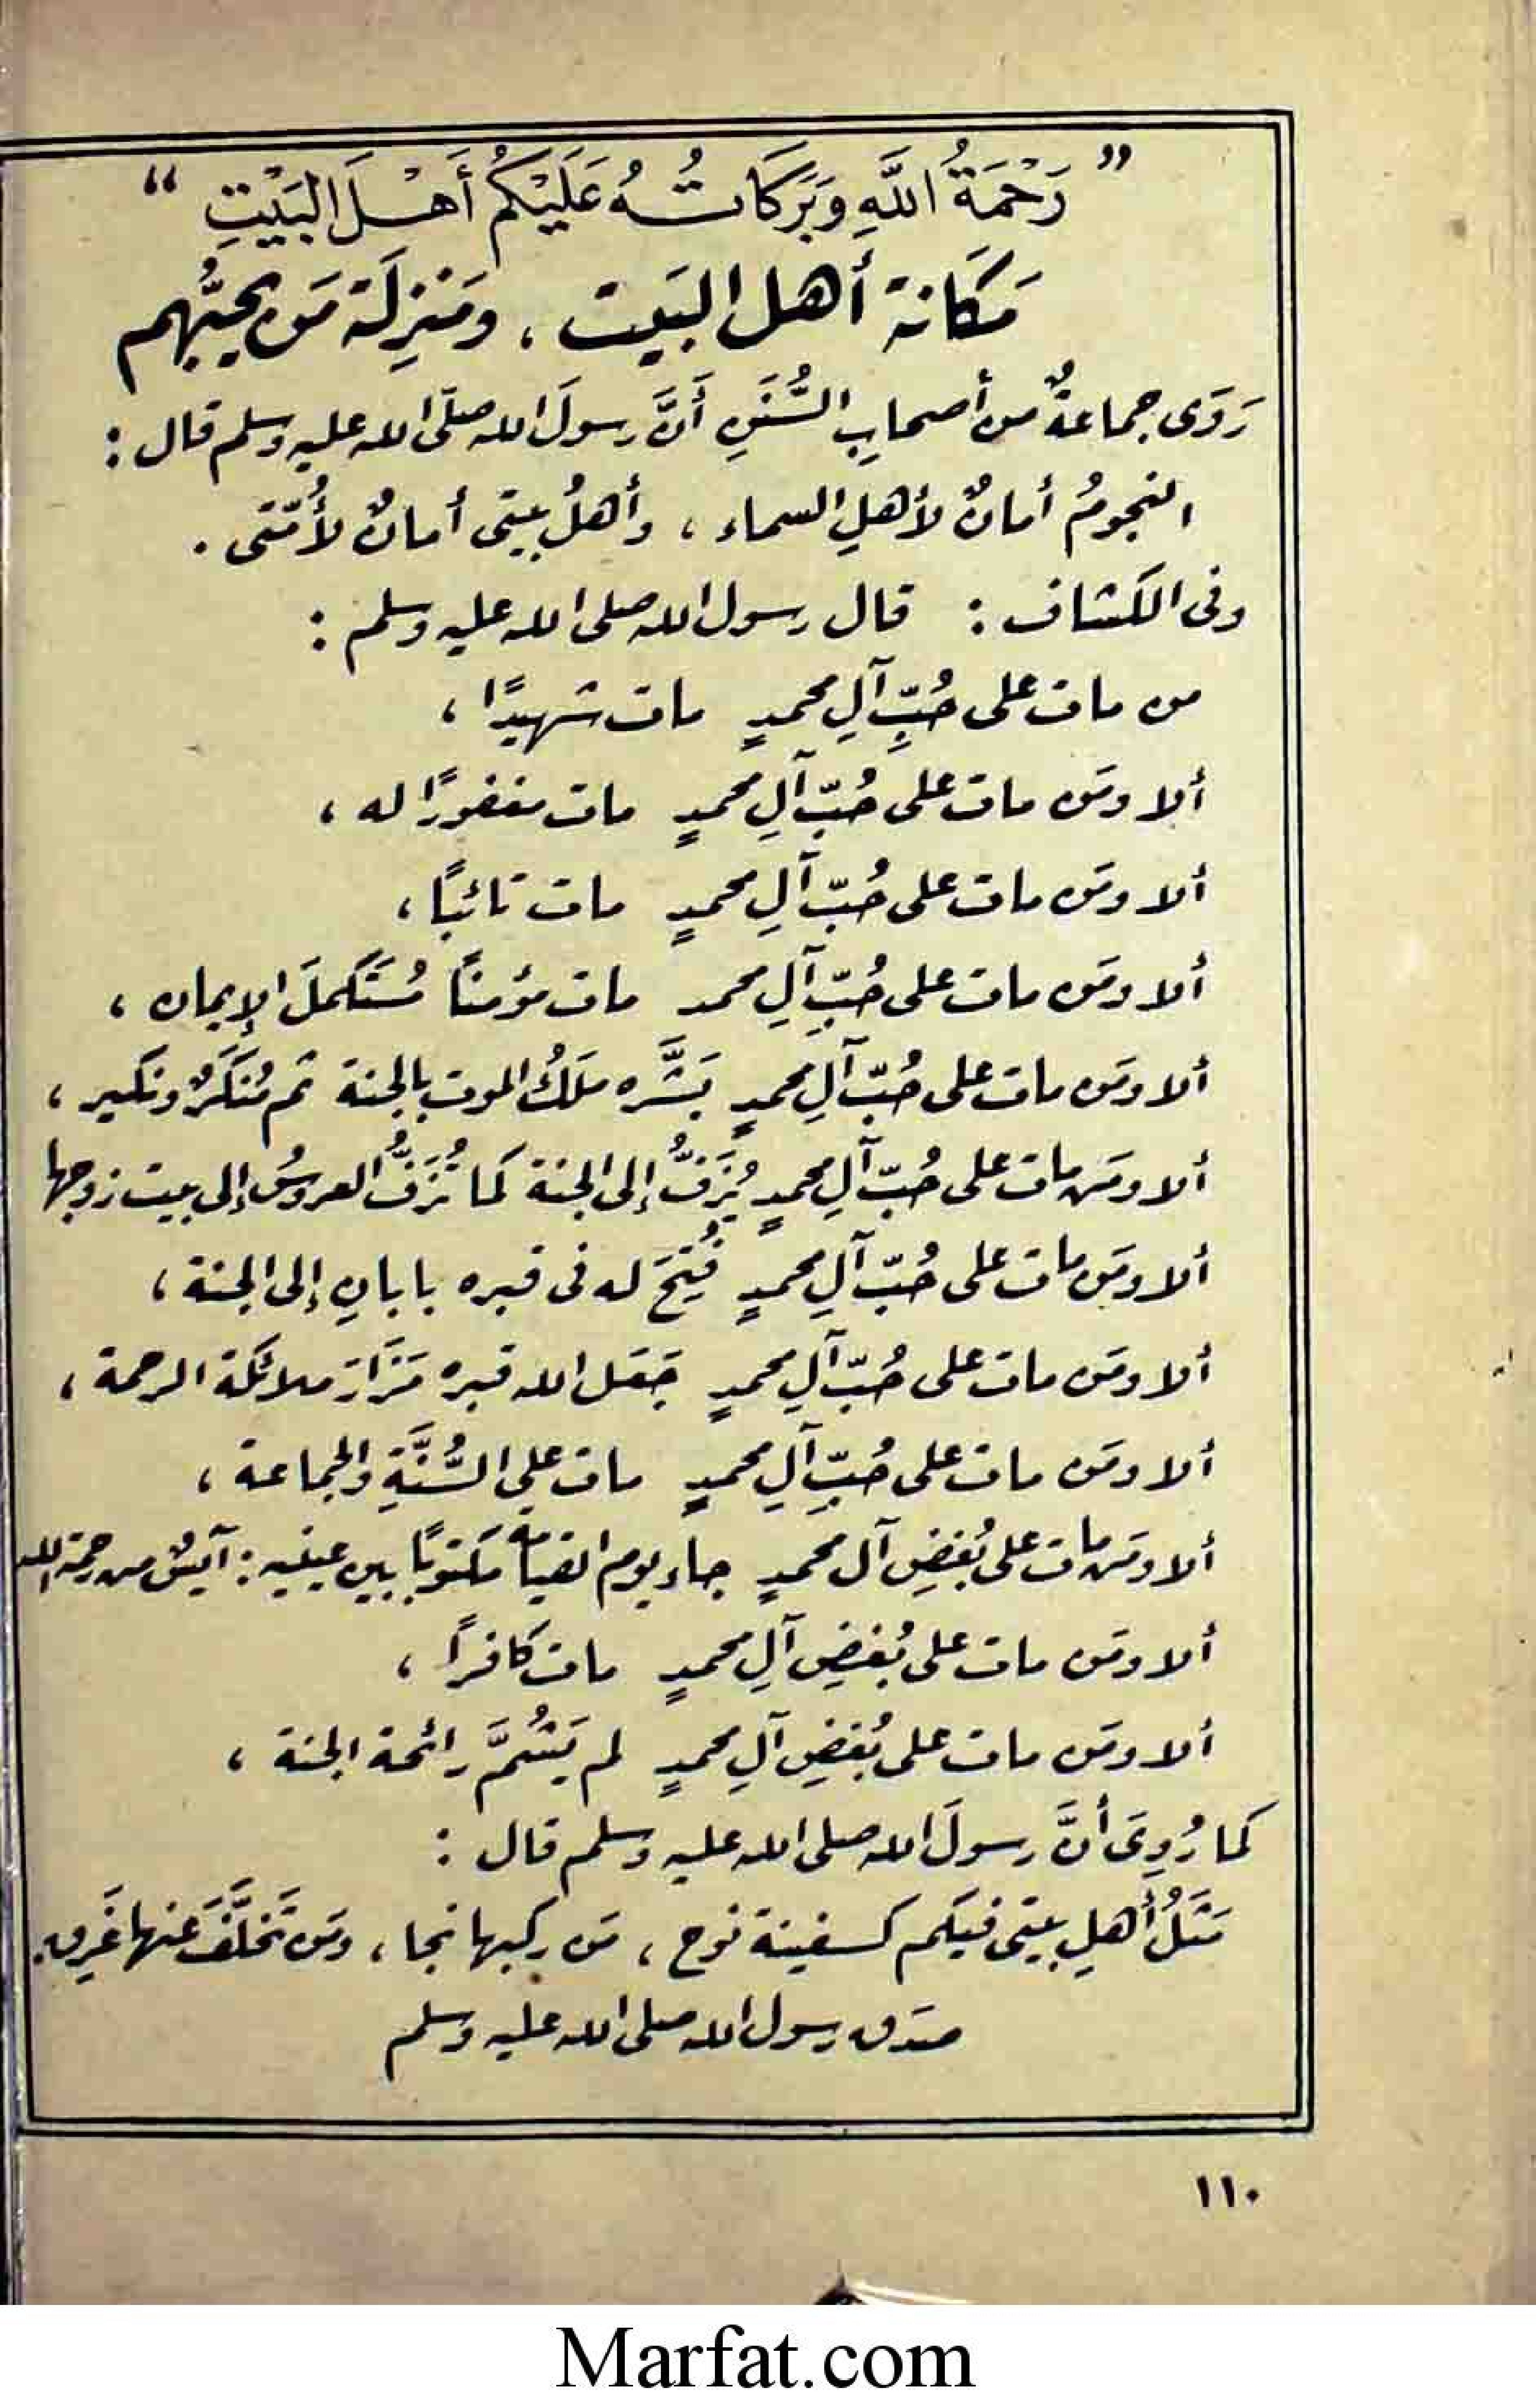 ” رَحْمَةُ اللَّهِ وَبَرَكَاتُهُ عَلَيْكُمْ أَهْلَ الْبَيْتِ “
مَكَانة أهل البَيت ، ومَنزِلَة مَن يحبُّهم
رَوَى جماعةٌ من أصحابِ السُّنَنِ أَنَّ رسولَ الله صلَّى الله عليه وسلم قال :
النجومُ أمانٌ لأهلِ السماء ، وأهلُ بيتى أمانٌ لأُمَّتى .
وفى الكشاف : قال رسول الله صلى الله عليه وسلم :
من مات على حُبِّ آلِ محمدٍ مات شهيدًا ،
ألا ومَن مات على حُبّ آلِ محمدٍ مات مغفورًا له ،
ألا ومَن مات على حُبّ آلِ محمدٍ مات تائبًا ،
ألا ومَن مات على حُبِّ آلِ محمد مات مؤمنًا مُستَكملَ الإيمان ،
ألا ومَن مات على حُبّ آلِ محمدٍ بَشَّره ملَكُ الموت بالجنة ثم مُنكَرٌ ونكير ،
ألا ومَن مات على حُبّ آلِ محمدٍ يُزَفُّ إلى الجنة كما تُزَفُّ العروسُ إلى بيت زوجها
ألا ومَن مات على حُبّ آلِ محمدٍ فُتِحَ له فى قبره بابانِ إلى الجنة ،
ألا ومَن مات على حُبّ آلِ محمدٍ جَعَل الله قبره مَزَارَ ملائكة الرحمة ،
ألا ومَن مات على حُبِّ آلِ محمدٍ مات على السُّنَّةِ والجماعة ،
ألا ومَن مات على بُغضِ آل محمدٍ جاء يوم القيامة مكتوبًا بين عينيه : آيسٌ من رحمة الله
ألا ومَن مات على بُغضِ آلِ محمدٍ مات كافرًا ،
ألا ومَن مات على بُغضِ آلِ محمدٍ لم يَشُمَّ رائحة الجنة ،
كما رُوِىَ أنَّ رسولَ الله صلى الله عليه وسلم قال :
مَثَلُ أهلِ بيتى فيكم كسفينة نوح ، مَن ركبها نجا ، ومَن تَخلَّفَ عنها غَرِق .
صدَق رسول الله صلى الله عليه وسلم
١١٠
Marfat.com